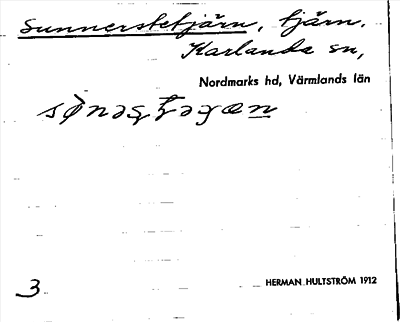 Sunnerstetjärn, tjärn.
Karlanda sn,
Nordmarks hd, Värmlands län
3
HERMAN HULTSTRÖM 1912